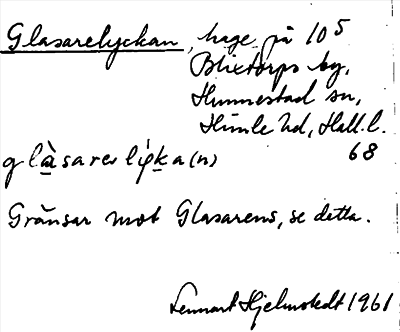 Glasarelyckan, hage på 10⁵
Blixtorps by,
Hunnestad sn,
Himle hd, Hall. l.
68
glàsareslyka(n)
Gränsar mot Glasarens, se detta.
Lennart Hjelmstedt 1961